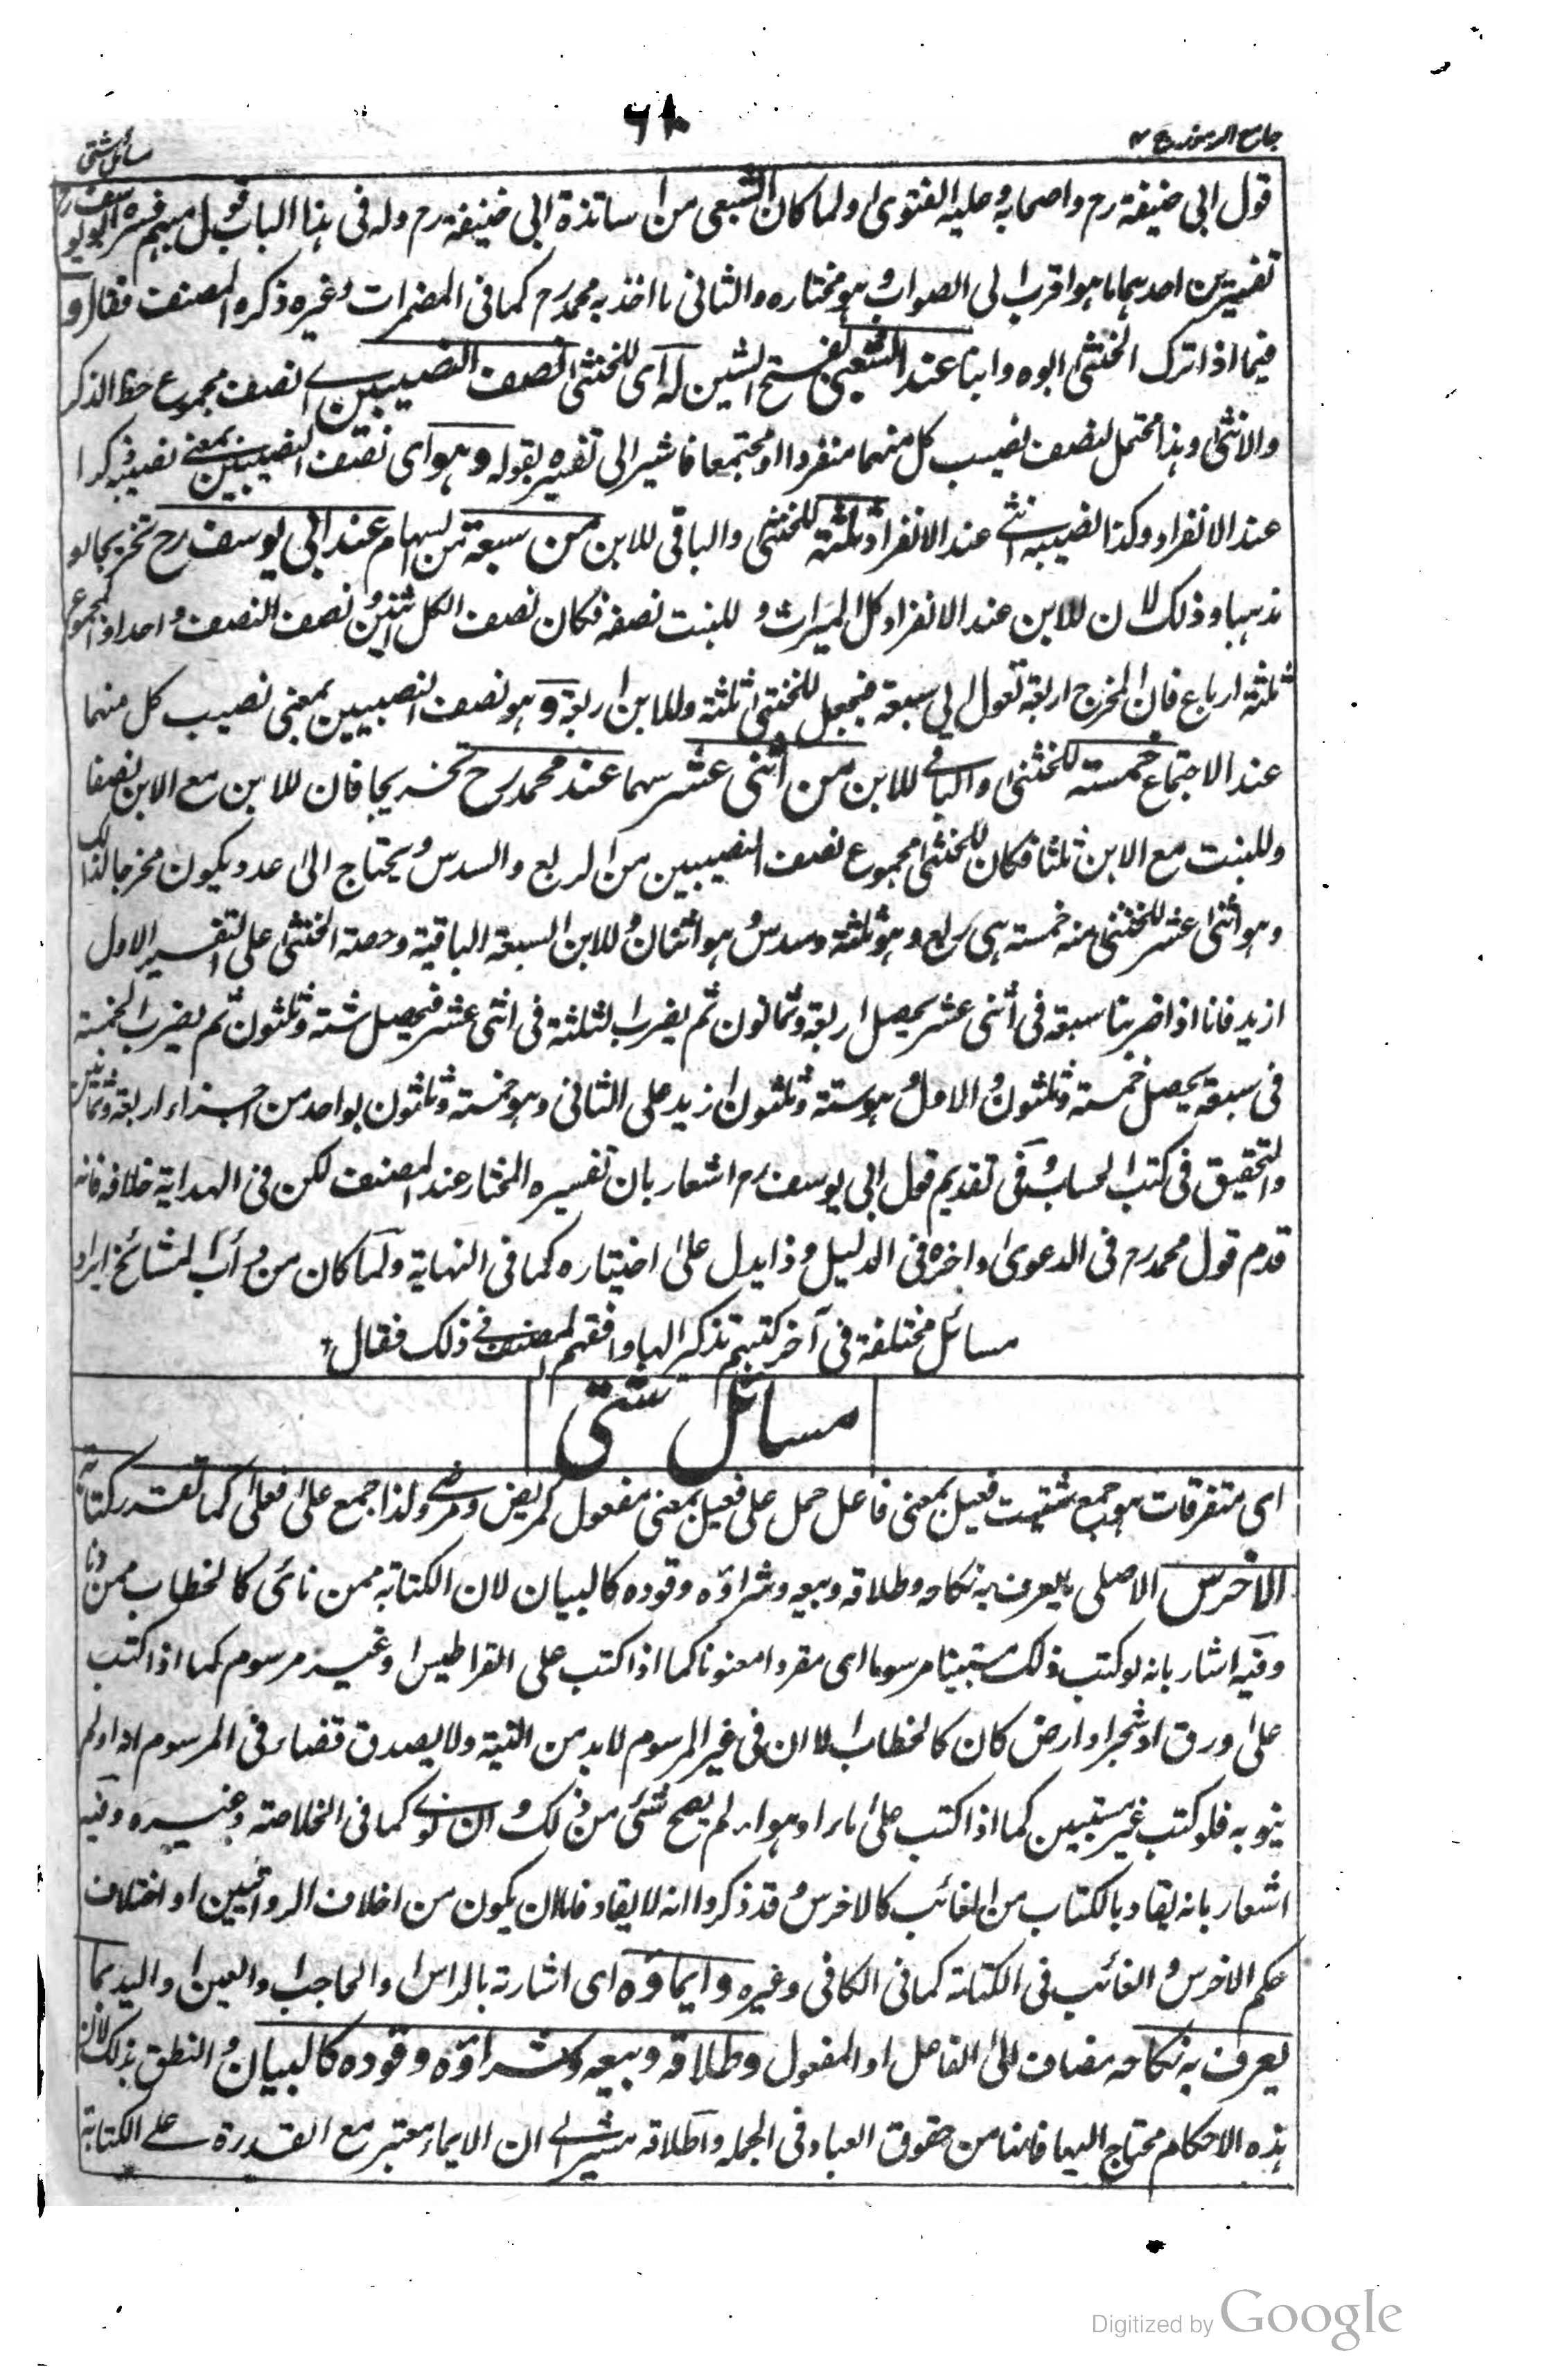 جامع الرموز ج ٢
٦٨
مسائل شتى
قول ابى حنيفة رح واصحابه وعليه الفتوى ولما كان الشعبى من اساتذة ابى حنيفة رح وله فى هذا الباب قول مبهم فسره ابو يوسف رح
تفسيرين احدهما ما هو اقرب الى الصواب وهو مختاره والثانى ما اخذ به محمد رح كما فى المضمرات وغيره ذكره المصنف فقال و
فيما اذا ترك الخنثى ابوه وابنا عند الشعبى بفتح الشين له اى للخنثى نصف النصيبين اى نصف مجموع حظ الذكر
والانثى وهذا محتمل لنصف نصيب كل منهما منفردا او مجتمعا فاشير الى تفسيره بقوله وهو اى نصف النصيبين بمعنى نصيبه ذكرا
عند الانفراد وكذا نصيبه انثى عند الانفراد ثلثة للخنثى والباقى للابن من سبعة من السهام عند ابى يوسف رح تخريجا لو
ذهبا وذلك لان للابن عند الانفراد كل الميراث و للبنت نصفه فكان نصف الكل اثنين ونصف النصف واحدا والمجموع
ثلثة ارباع فان المخرج اربعة تعول الى سبعة فيجعل للخنثى ثلثة وللابن اربعة وهو نصف النصيبين بمعنى نصيب كل منهما
عند الاجتماع خمسة للخنثى والباقى للابن من اثنى عشر سهما عند محمد رح تخريجا فان للابن مع الابن نصفا
وللبنت مع الابن ثلثا فكان للخنثى مجموع نصف النصيبين من الربع والسدس ويحتاج الى عدد يكون مخرجا لذلك
وهو اثنى عشر للخنثى منه خمسة هى ربع وهو ثلثة وسدس وهو اثنان وللابن السبعة الباقية وحصة الخنثى على التفسير الاول
ازيد فانا اذا ضربنا سبعة فى اثنى عشر يحصل اربعة وثمانون ثم يضرب الثلثة فى اثنى عشر فيحصل ستة وثلثون ثم يضرب الخمسة
فى سبعة يحصل خمسة وثلثون والاول هو ستة وثلثون ازيد على الثانى وهو خمسة وثلثون بواحد من اجزاء اربعة وثمانين
والتحقيق فى كتب الحساب وفى تقديم قول ابى يوسف رح اشعار بان تفسيره المختار عند المصنف لكن فى الهداية خلافه فانه
قدم قول محمد رح فى الدعوى واخره فى الدليل وذا يدل على اختياره كما فى النهاية ولما كان من دأب المشائخ ايراد
مسائل مختلفة فى آخر كتبهم تذكيرا لها وافقهم المصنف فى ذلك فقال
مسائل شتى
اى متفرقات هو جمع شتيت فعيل بمعنى فاعل حمل على فعيل بمعنى مفعول كمريض ومرضى ولذا جمع على فعلى كما تقدر كتابة
الاخرس الاصلى بما يعرف به نكاحه وطلاقه وبيعه وشراؤه وقوده كالبيان لان الكتابة ممن نائى كالخطاب ممن دنا
وفيه اشار بانه لو كتب ذلك مستبينا مرسوما اى مقروا معنونا كما اذا كتب على القراطيس او غير مرسوم كما اذا كتب
على ورق او شجر او ارض كان كالخطاب الا ان فى غير المرسوم لابد من النية ولا يصدق قضاء فى المرسوم اذا لم
ينو به فلو كتب غير مستبين كما اذا كتب على ماء او هواء لم يصح شئ من ذلك وان نوى كما فى الخلاصة وغيره وفيه
اشعار بانه يقاد بالكتاب من الغائب كالاخرس وقد ذكروا انه لا يقاد فاما ان يكون من اختلاف الروايتين او اختلاف
حكم الاخرس والغائب فى الكتابة كما فى الكافى وغيره وايماؤه اى اشارته بالراس او الحاجب او العين او اليد بما
يعرف به نكاحه مضاف الى الفاعل او المفعول وطلاقه وبيعه وشراؤه وقوده كالبيان والنطق بذلك لان
هذه الاحكام محتاج اليها فانها من حقوق العباد فى الجملة واطلاقه مشير الى ان الايماء معتبر مع القدرة على الكتابة
Digitized by Google